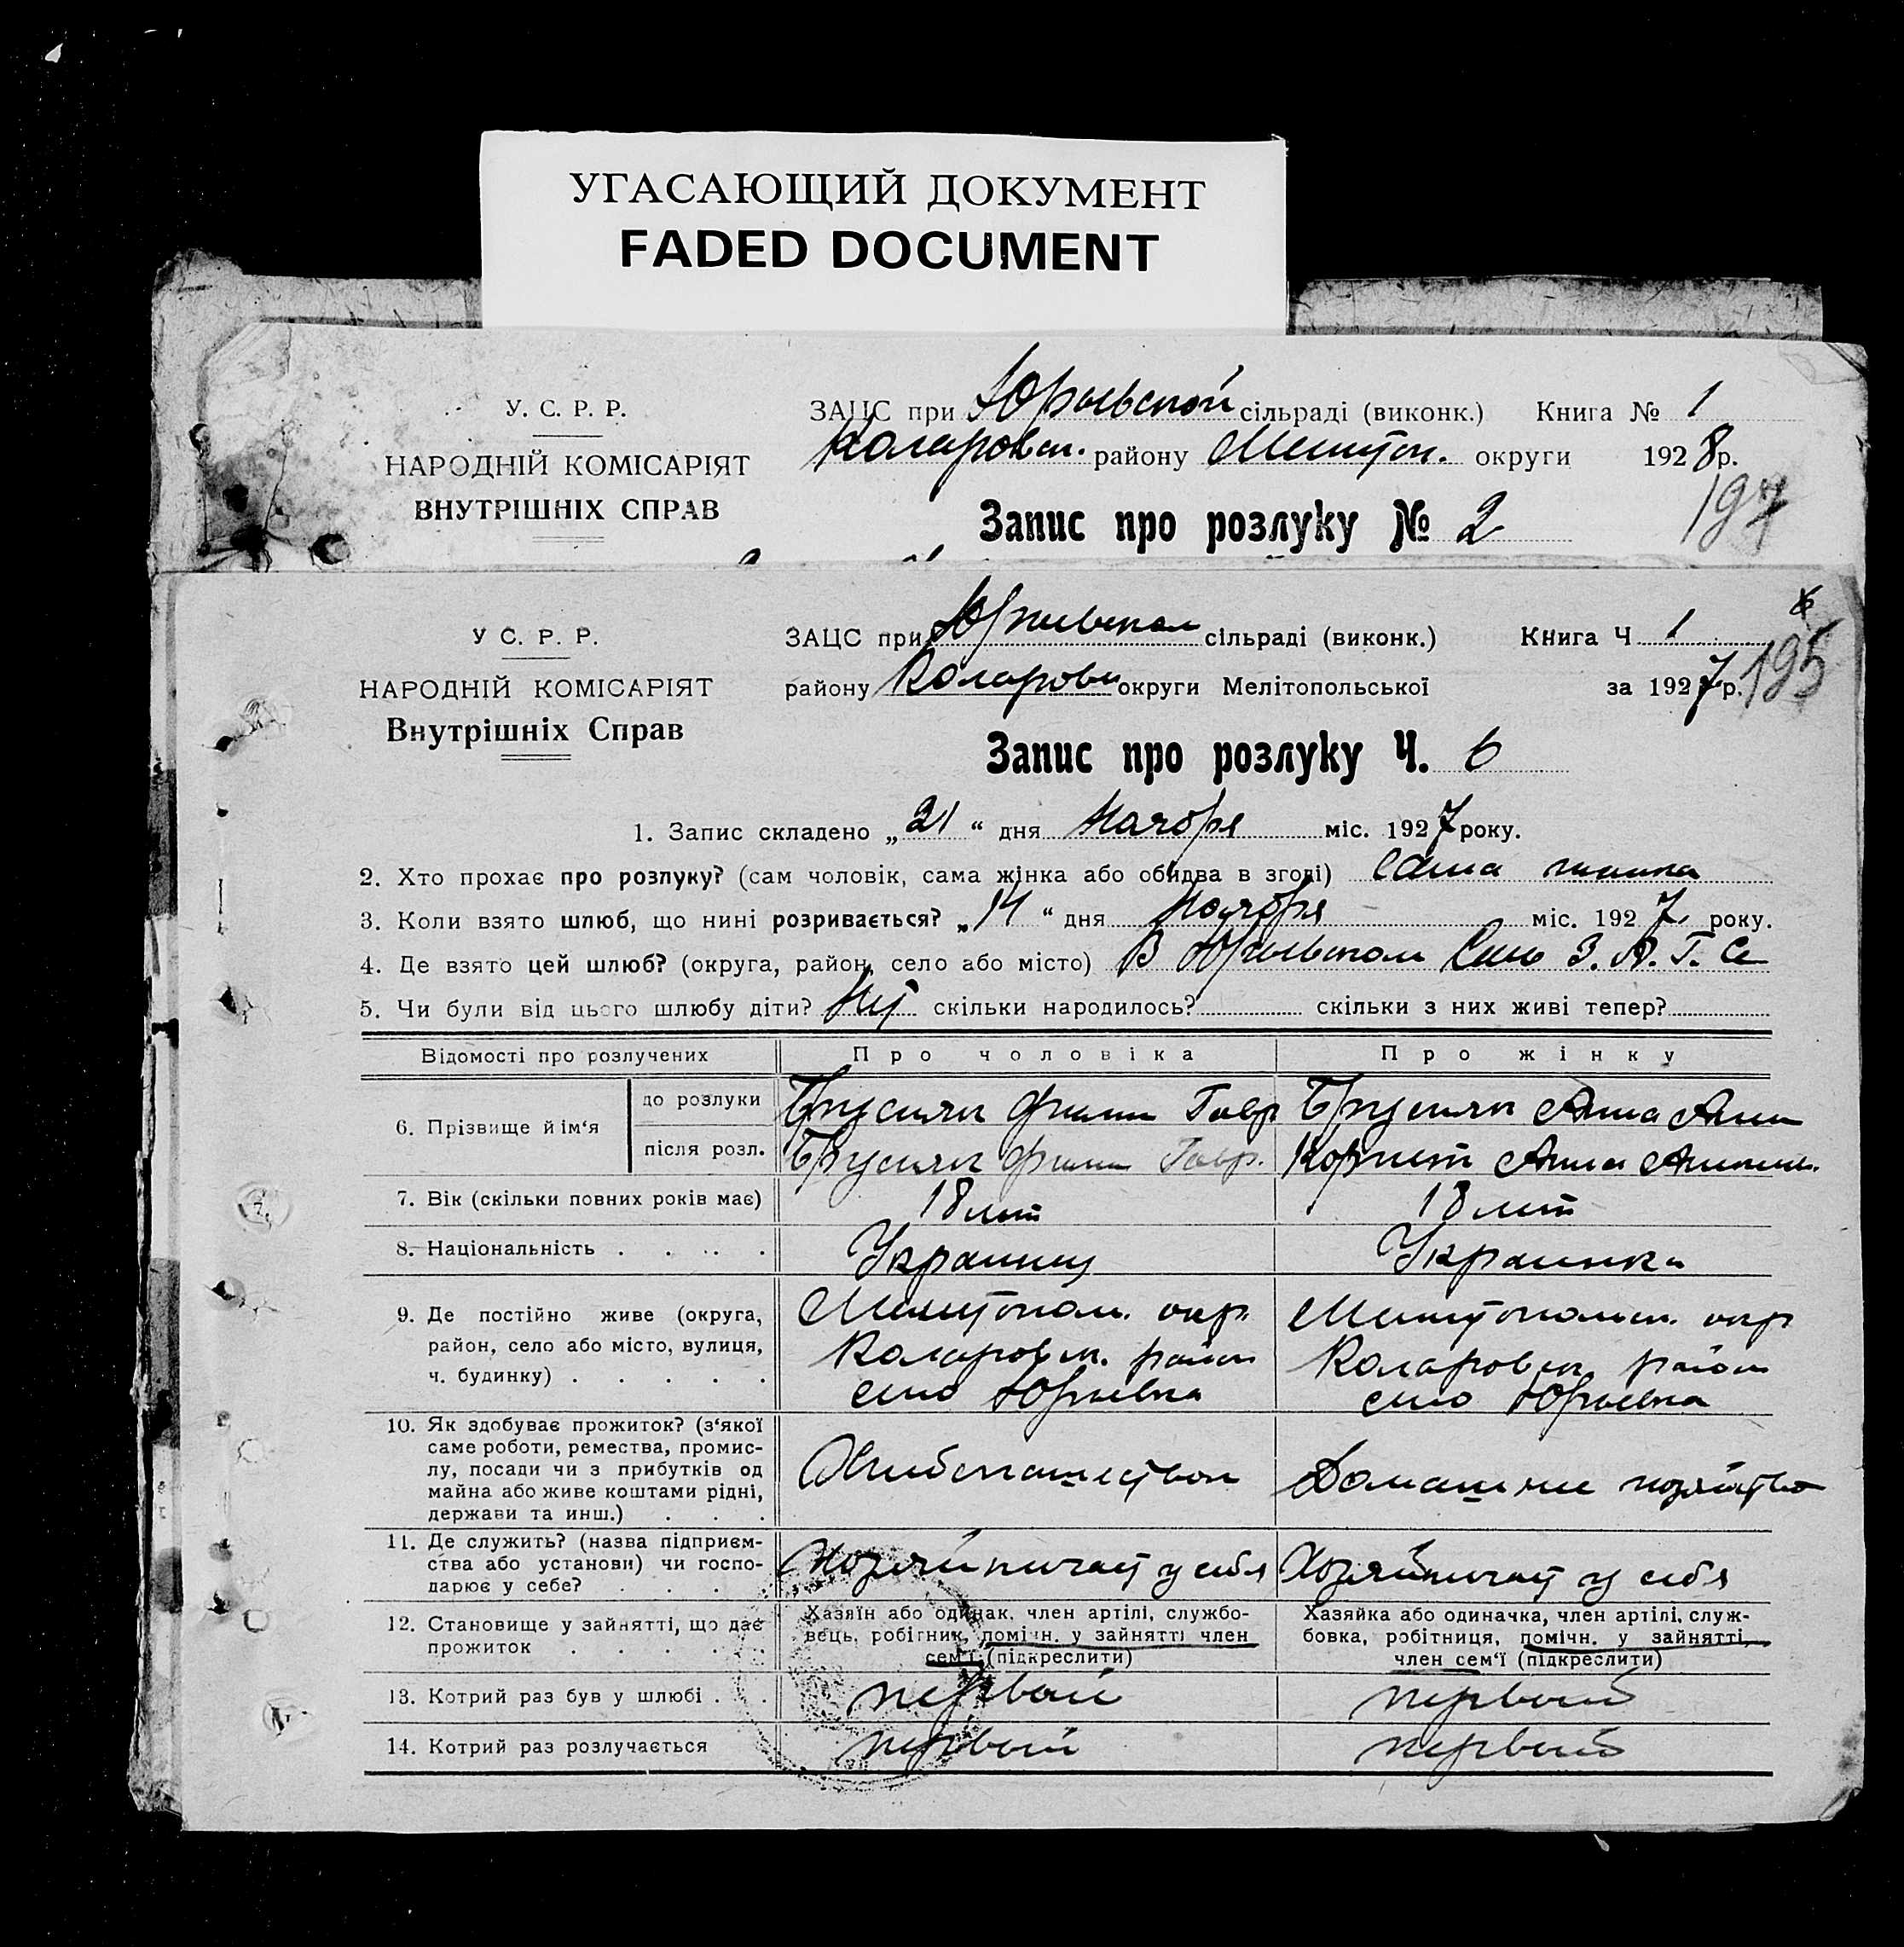 УГАСАЮЩИЙ ДОКУМЕНТ
FADED DOCUMENT
У. С. Р. Р.
НАРОДНІЙ КОМІСАРІЯТ
ВНУТРІШНІХ СПРАВ
ЗАЦС при Юрьевской сільраді (виконк.) Книга № 1
Коларовск. району Мелитоп. округи 1928р.
197
Запис про розлуку № 2
У С. Р. Р.
НАРОДНІЙ КОМІСАРІЯТ
Внутрішніх Справ
ЗАЦС при Юрьевском сільраді (виконк.) Книга Ч 1
району Коларовск округи Мелітопольської за 1927р.
195
Запис про розлуку Ч. 6
1. Запис складено „21“ дня Ноября міс. 1927 року.
2. Хто прохає про розлуку? (сам чоловік, сама жінка або обидва в згоді) Сама
3. Коли взято шлюб, що нині розривається? „14“ дня Ноября міс. 1927 року.
4. Де взято цей шлюб? (округа, район, село або місто) В Юрьевском Сель З.А.Г.Се
5. Чи були від цього шлюбу діти? Нет скільки народилось? скільки з них живі тепер?
Відомості про розлучених Про чоловіка Про жінку
6. Прізвище й ім‘я
до розлуки Трусиян Филип Гавр Трусиян Анна
після розл. Трусиян Филип Гавр. Корнет Анна
7. Вік (скільки повних років має) 18 лет 18 лет
8. Національність Украинец Украинка
9. Де постійно живе (округа, Мелитопол. окр. Мелитопольск. окр
район, село або місто, вулиця, Коларовск. район Коларовск. район
ч. будинку) село Юрьевка село Юрьевка
10. Як здобуває прожиток? (з‘якої
саме роботи, ремества, промис-
лу, посади чи з прибутків од
майна або живе коштами рідні,
держави та инш.)
Хлебопашеством Домашнее хозяйство
11. Де служить? (назва підприєм-
ства або установи) чи госпо-
дарює у себе?
Хозяйничает у себя Хозяйничает у себя
12. Становище у зайнятті, що дає
прожиток
Хазяїн або одинак, член артілі, службо-
вець, робітник, помічн. у зайнятті член
сем‘ї (підкреслити)
Хазяйка або одиначка, член артілі, служ-
бовка, робітниця, помічн. у зайнятті,
член сем‘ї (підкреслити)
13. Котрий раз був у шлюбі первый первый
14. Котрий раз розлучається первый первый